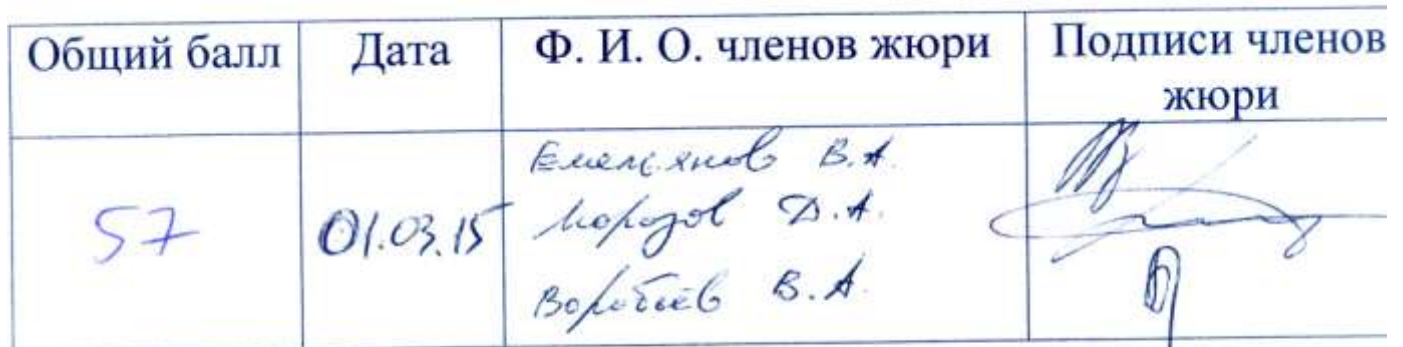 Общий балл
Дата
Ф. И. О. членов жюри
Подписи членов
жюри
57
01.03.15
Емельянов В.А.
Морозов Д.А.
Воробьёв В.А.